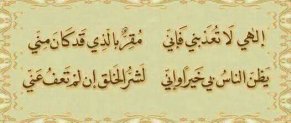 إِلهِي لَا تُعَذِّبْنِي فَإِنِّي مُقِرٌّ بِالَّذِي قَدْ كَانَ مِنِّي
يَظُنُّ النَّاسُ بِي خَيْرًا وَإِنِّي لَشَرُّ الْخَلْقِ إِنْ لَمْ تَعْفُ عَنِّي